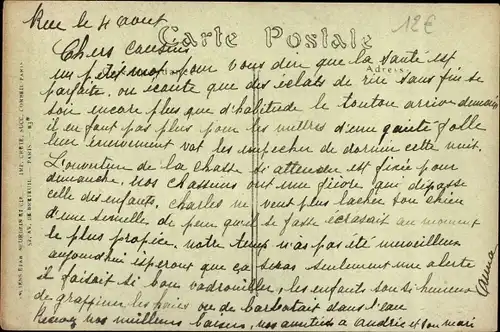 Rue le 4 aout
12€
Carte Postale
Chers cousins
un petit mot pour vous dire que la santé est
Adresse
parfaite. on écoute que des éclats de rire sans fin se
son encore plus que d'habitude le tonton arrive demain
il en faut pas plus pour les mettres d'une gaité folle
leur énervement vat les empecher de dormir cette nuit.
L'ouverture de la chasse si attendue est fixée pour
dimanche, nos chasseurs ont une fièvre qui dépasse
celle des enfants. Charles ne veut plus lacher son chien
d'une semelle de peur qu'il se fasse écrasait au moment
le plus propice. notre temp n'as pas été merveilleux
aujourdhui espéront que ça seras seulement une alerte
il faisait si bon vadrouiller, les enfants son si heureux
de grapiller les ou de barbotait dans l'eau
Recevez nos meilleurs baisers, nos amitiés a Andrée et son mari
Anna